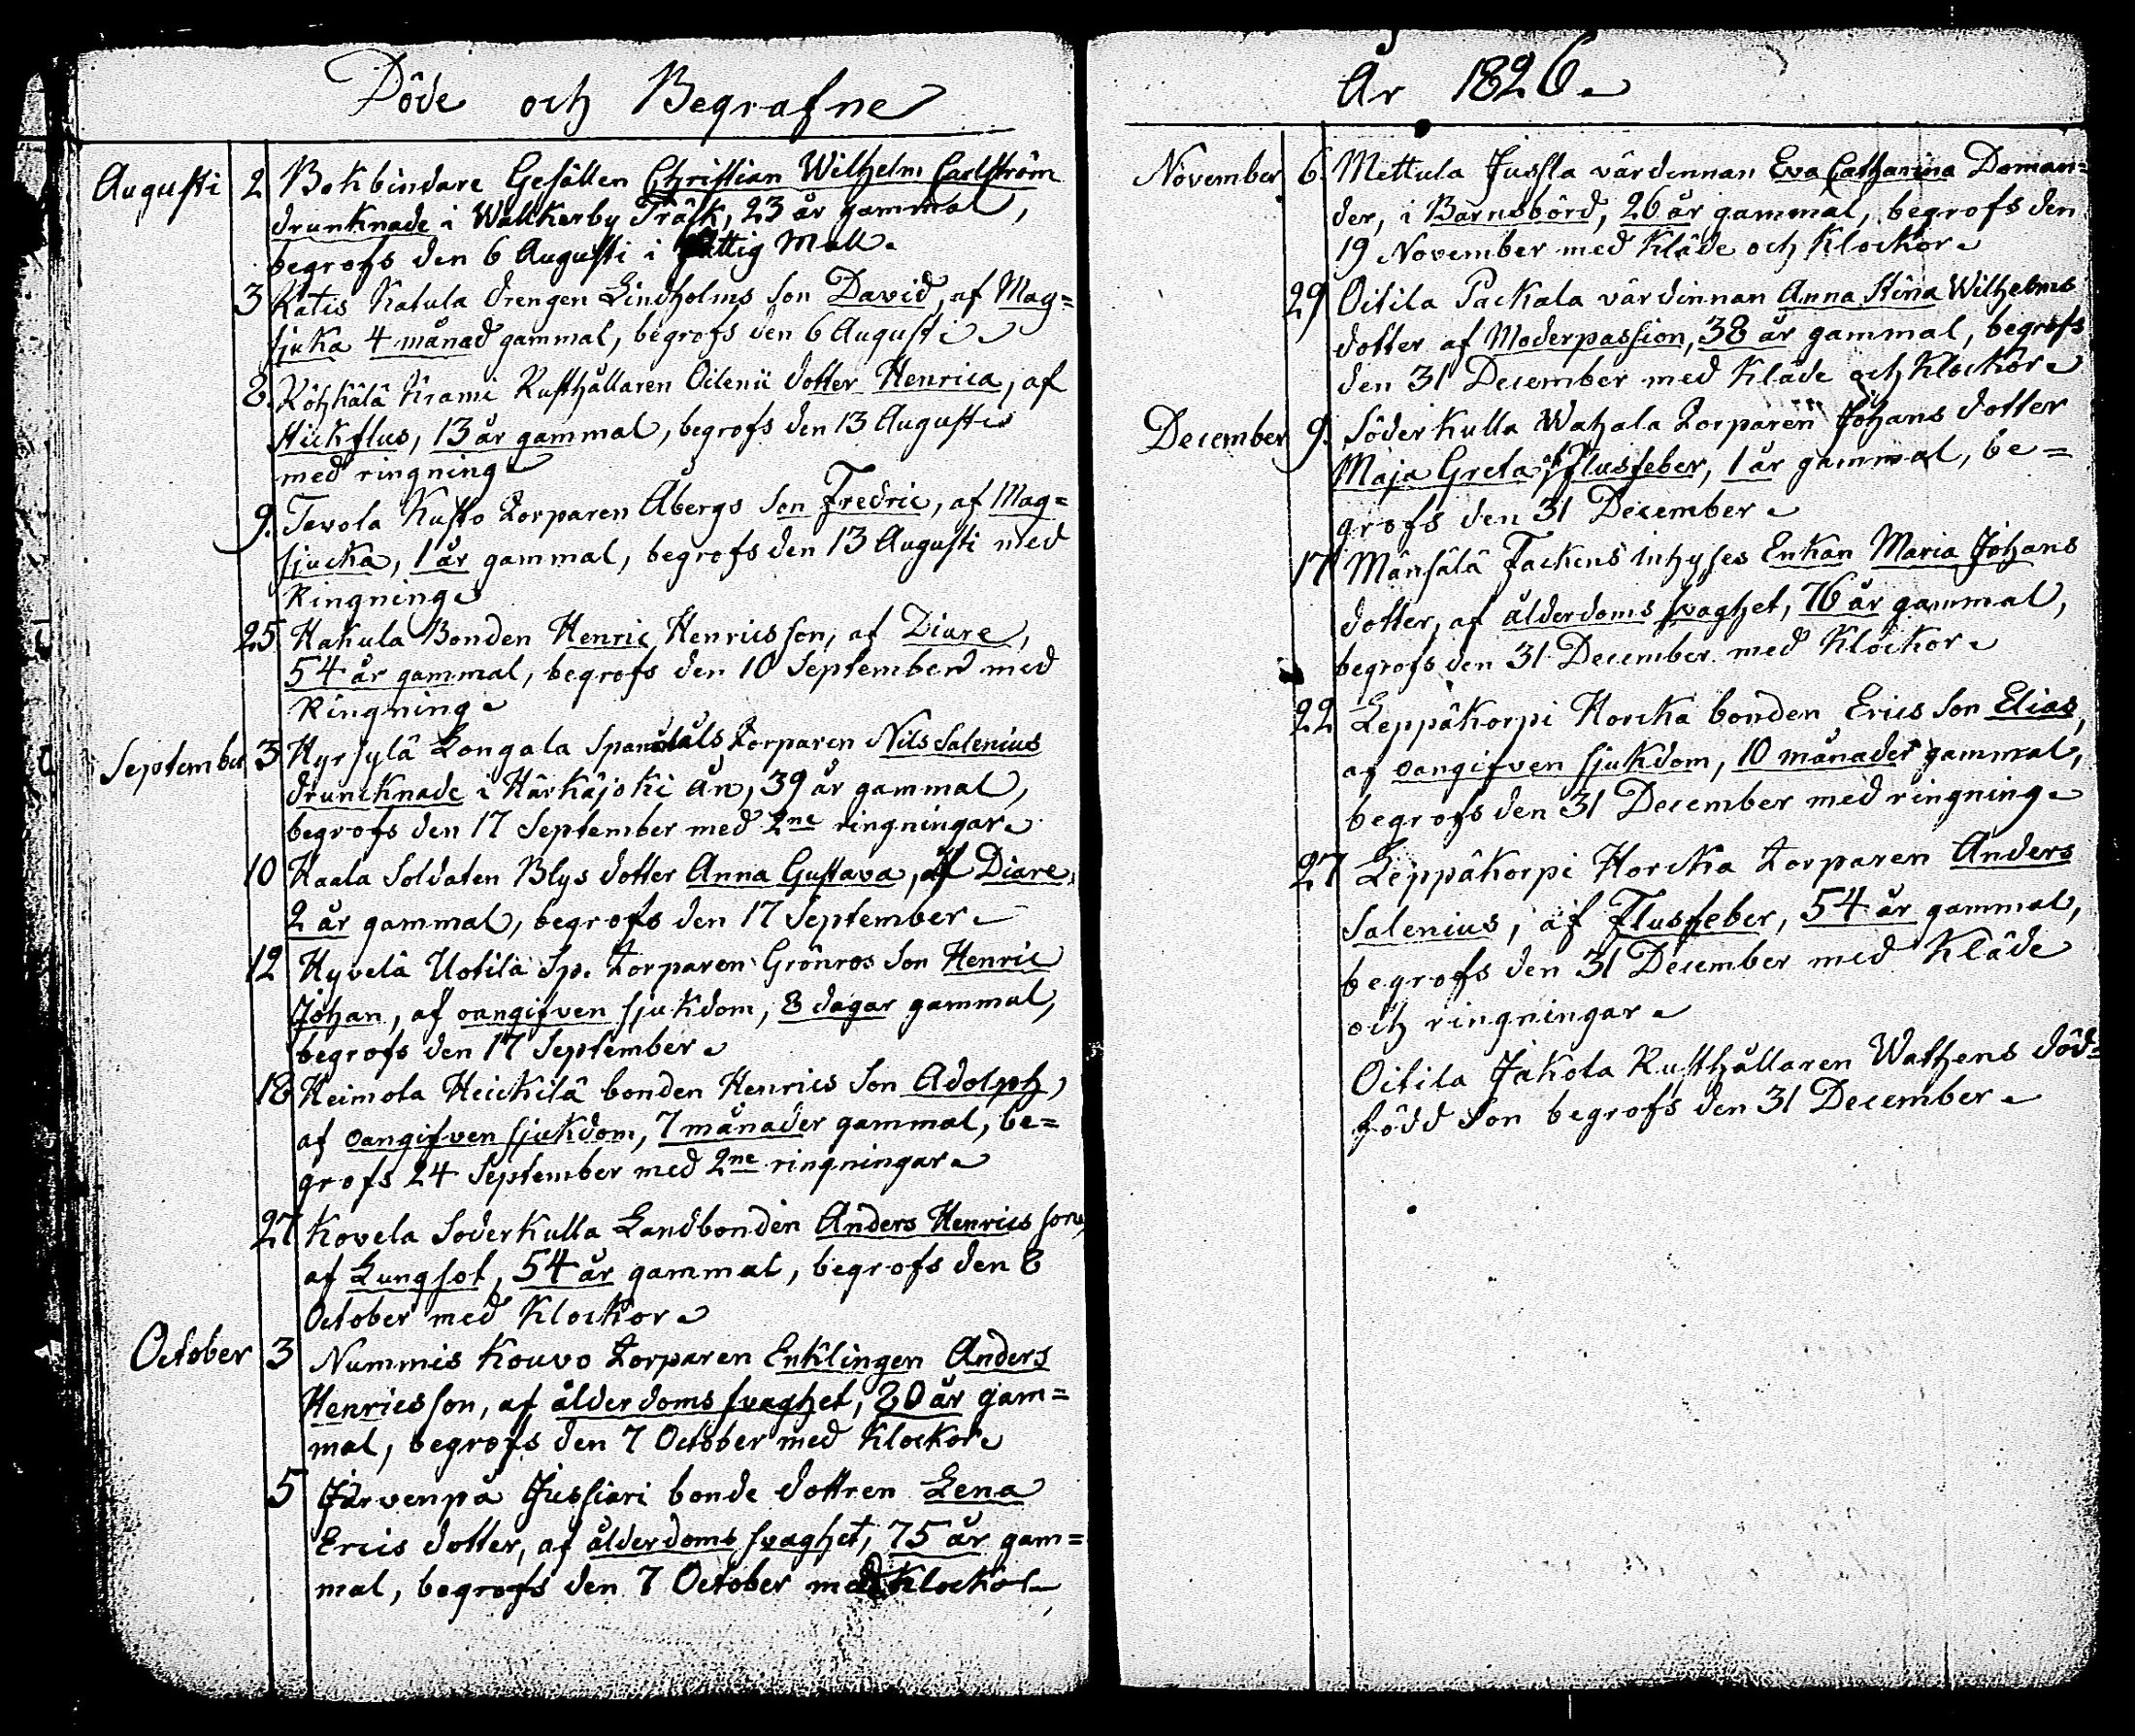 Döde och Begrafne
Augusti 2 Bokbindare Gesällen Christian Wilhelm Carlström
drunknade i Walkerby Träsk, 23 år gammal,
begrofs den 6 Augusti i fattig Mull.
3 Katis Katula drengen Lindholms Son David, af Mag=
sjuka 4 månad gammal, begrofs den 6 Augusti
8. Röhkälä Krami Rusthållaren Oilenii dotter Henrica, af
Stickflus, 13 år gammal, begrofs den 13 Augusti
med ringning
9. Tavola Kusto Torparen Åbergs Son Fredric, af Mag=
sjucka, 1 år gammal, begrofs den 13 Augusti med
Ringning
25 Hakula Bonden Henric Henricsson, af Diare,
54 år gammal, begrofs den 10 September med
Ringning
September 3 Hyrsylä Longala Torparen Nils Salenius
druncknade i Härkäjoki ån, 39 år gammal,
begrofs den 17 September med 2ne ringningar
10 Haala Soldaten Blys dotter Anna Gustava, af Diare,
2 år gammal, begrofs den 17 September
12 Hyvelä Uotila Sp. Torparen Grönros Son Henric
Johan, af oangifven sjukdom, 8 dagar gammal,
begrofs den 17 September
18 Heimola Heickilä bonden Henrics Son Adolph,
af oangifven sjukdom, 7 månader gammal, be=
grofs 24 September med 2ne ringningar
27 Kovela Söderkulla Landbonden Anders Henricsson,
af Lungsot, 54 år gammal, begrofs den 8
October med Klockor
October 3 Nummis Kouvo Torparen Enklingen Anders
Henricsson, af ålderdoms svaghet, 80 år gam=
mal, begrofs den 7 October med Klockor
5 Järvenpä Jussiari bonde dottren Lena
Erics dotter, af ålderdoms svaghet, 75 år gam=
mal, begrofs den 7 October med Klockor
År 1826.
November 6. Mettula Jussla värdinnan Eva Catharina Doman=
der, i Barnsbörd, 26 år gammal, begrofs den
19 November med Kläde och Klockor
29 Oitila Packala värdinnan Anna Stina Wilhelms
dotter af Moderpassion, 38 år gammal, begrofs
den 31 December med Kläde och Klockor
December 9. Söderkulla Wahala Torparen Johans dotter
Maja Greta af Flusfeber, 1 år gammal, be=
grofs den 31 December
17 Mänsälä Fackens inhyses Enkan Maria Johans
dotter, af ålderdoms svaghet, 76 år gammal,
begrofs den 31 December med Klockor
22 Leppäkorpi Horcka bonden Erics Son Elias,
af oangifven sjukdom, 10 månader gammal,
begrofs den 31 December med ringning
27 Leppäkorpi Horcka Torparen Anders
Salenius, af Flusfeber, 54 år gammal,
begrofs den 31 December med Kläde
och ringningar
Oitila Jakola Rusthållaren Wathens död=
född Son begrofs den 31 December